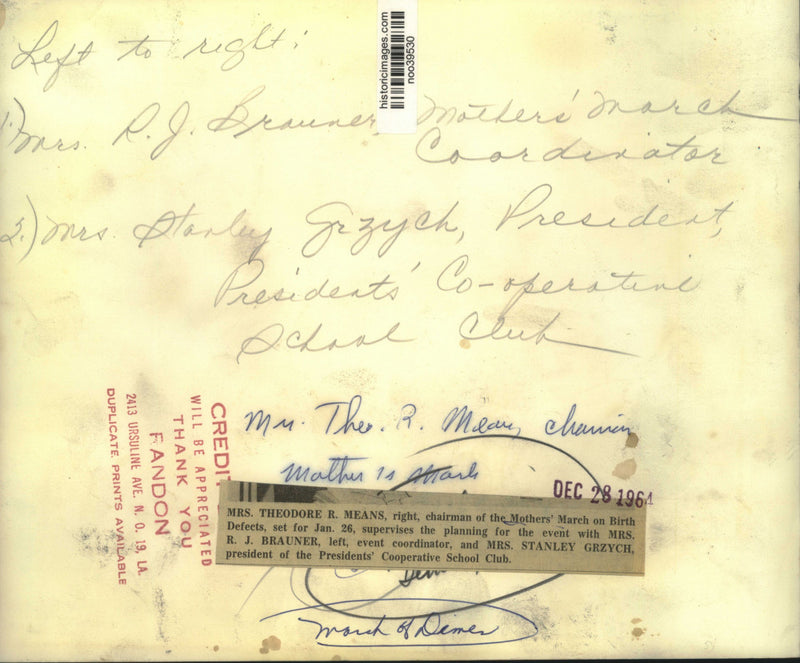 historicimages.com
noo39530
Left to right:
1.) Mrs. R. J. Brauner, Mothers' March
Coordinator
2.) Mrs. Stanley Grzych, President,
Presidents' Co-operative
School Club
Mrs. Theo. R. Means, chairman
Mother's March
DEC 28 1964
MRS. THEODORE R. MEANS, right, chairman of the Mothers' March on Birth
Defects, set for Jan. 26, supervises the planning for the event with MRS.
R. J. BRAUNER, left, event coordinator, and MRS. STANLEY GRZYCH,
president of the Presidents' Cooperative School Club.
March of Dimes
CREDIT
WILL BE APPRECIATED
THANK YOU
FANDON
2413 URSULINE AVE. N. O. 19, LA.
DUPLICATE PRINTS AVAILABLE